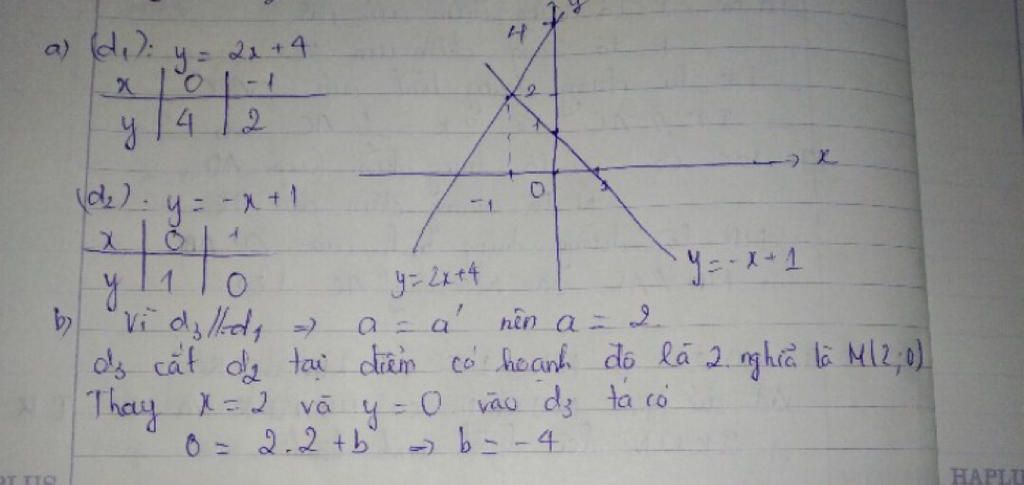 a) (d₁): y = 2x+4
x | 0 | -1
y | 4 | 2
(d₂): y = -x+1
x | 0 | 1
y | 1 | 0
y
4
2
1
x
0
-1
1
y=2x+4
y=-x+1
b) Vì d₃//d₁ => a = a' nên a = 2
d₃ cắt d₂ tại điểm có hoành độ là 2. nghĩa là M(2;0)
Thay x = 2 và y = 0 vào d₃ ta có
0 = 2.2+b => b = -4
PLUS
HAPLU